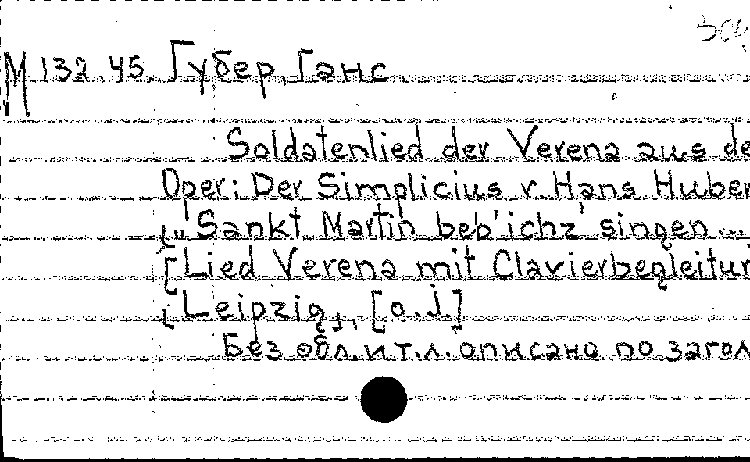 М 132.45. Губер, Ганс.
Soldatenlied der Verena aus de
Oper: Der Simplicius v. Hans Huber
„Sankt Martin beb' ich z' singen...
[Lied Verena mit Clavierbegleitun
[Leipzig], [o.J.]
Без обл. и т.л. описано по загол